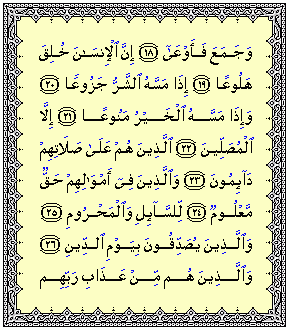 وَجَمَعَ فَأَوْعَىٰٓ ١٨ إِنَّ ٱلْإِنسَـٰنَ خُلِقَ
هَلُوعًا ١٩ إِذَا مَسَّهُ ٱلشَّرُّ جَزُوعًا ٢٠
وَإِذَا مَسَّهُ ٱلْخَيْرُ مَنُوعًا ٢١ إِلَّا
ٱلْمُصَلِّينَ ٢٢ ٱلَّذِينَ هُمْ عَلَىٰ صَلَاتِهِمْ
دَآئِمُونَ ٢٣ وَٱلَّذِينَ فِىٓ أَمْوَٰلِهِمْ حَقٌّ
مَّعْلُومٌ ٢٤ لِّلسَّآئِلِ وَٱلْمَحْرُومِ ٢٥
وَٱلَّذِينَ يُصَدِّقُونَ بِيَوْمِ ٱلدِّينِ ٢٦
وَٱلَّذِينَ هُم مِّنْ عَذَابِ رَبِّهِم